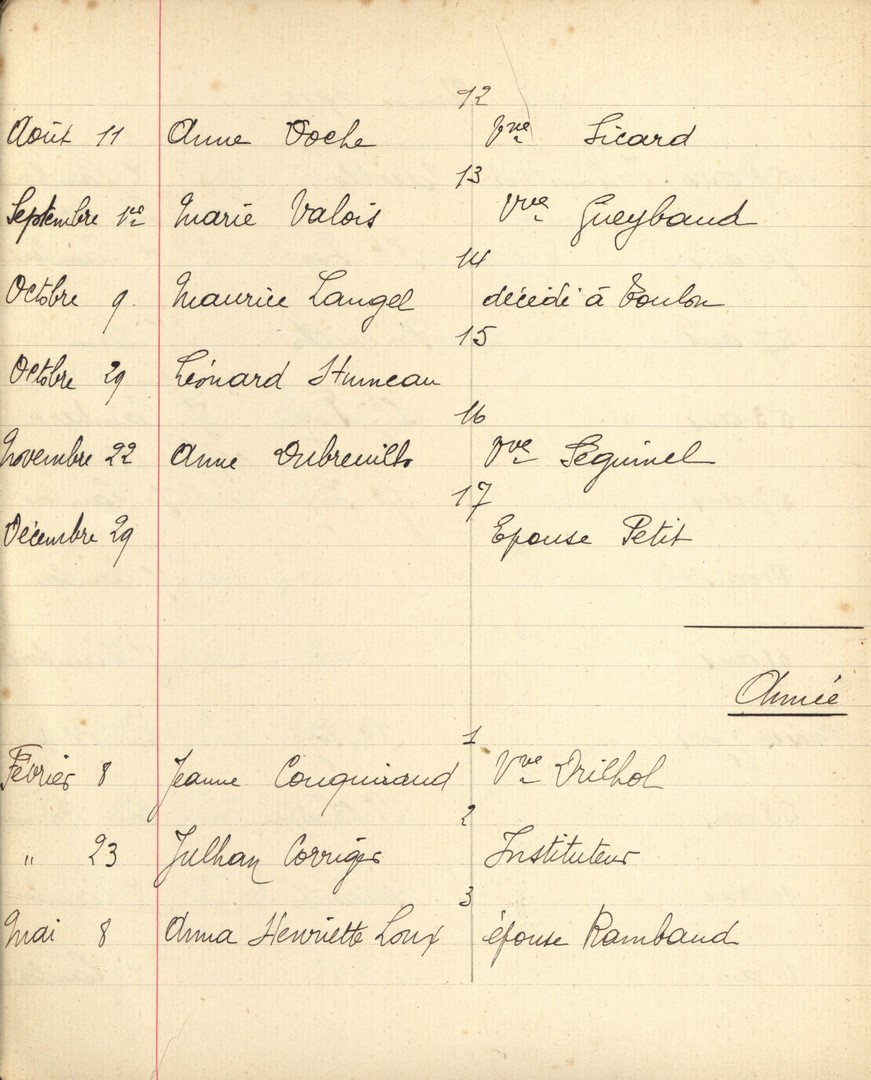 12
Août 11 Anne Doche Vve Sicard
13
Septembre 1er Marie Valois Vve Gueybaud
14
Octobre 9. Maurice Langel décédé à Toulon
15
Octobre 29 Léonard
16
Novembre 22 Anne Dubreuilh Vve Séguinel
17
Décembre 29 Epouse Petit
Année
1
Février 8 Jeanne Vve Drilhol
2
" 23 Julhan Corriger Instituteur
3
Mai 8 Anna Henriette Loux épouse Rambaud